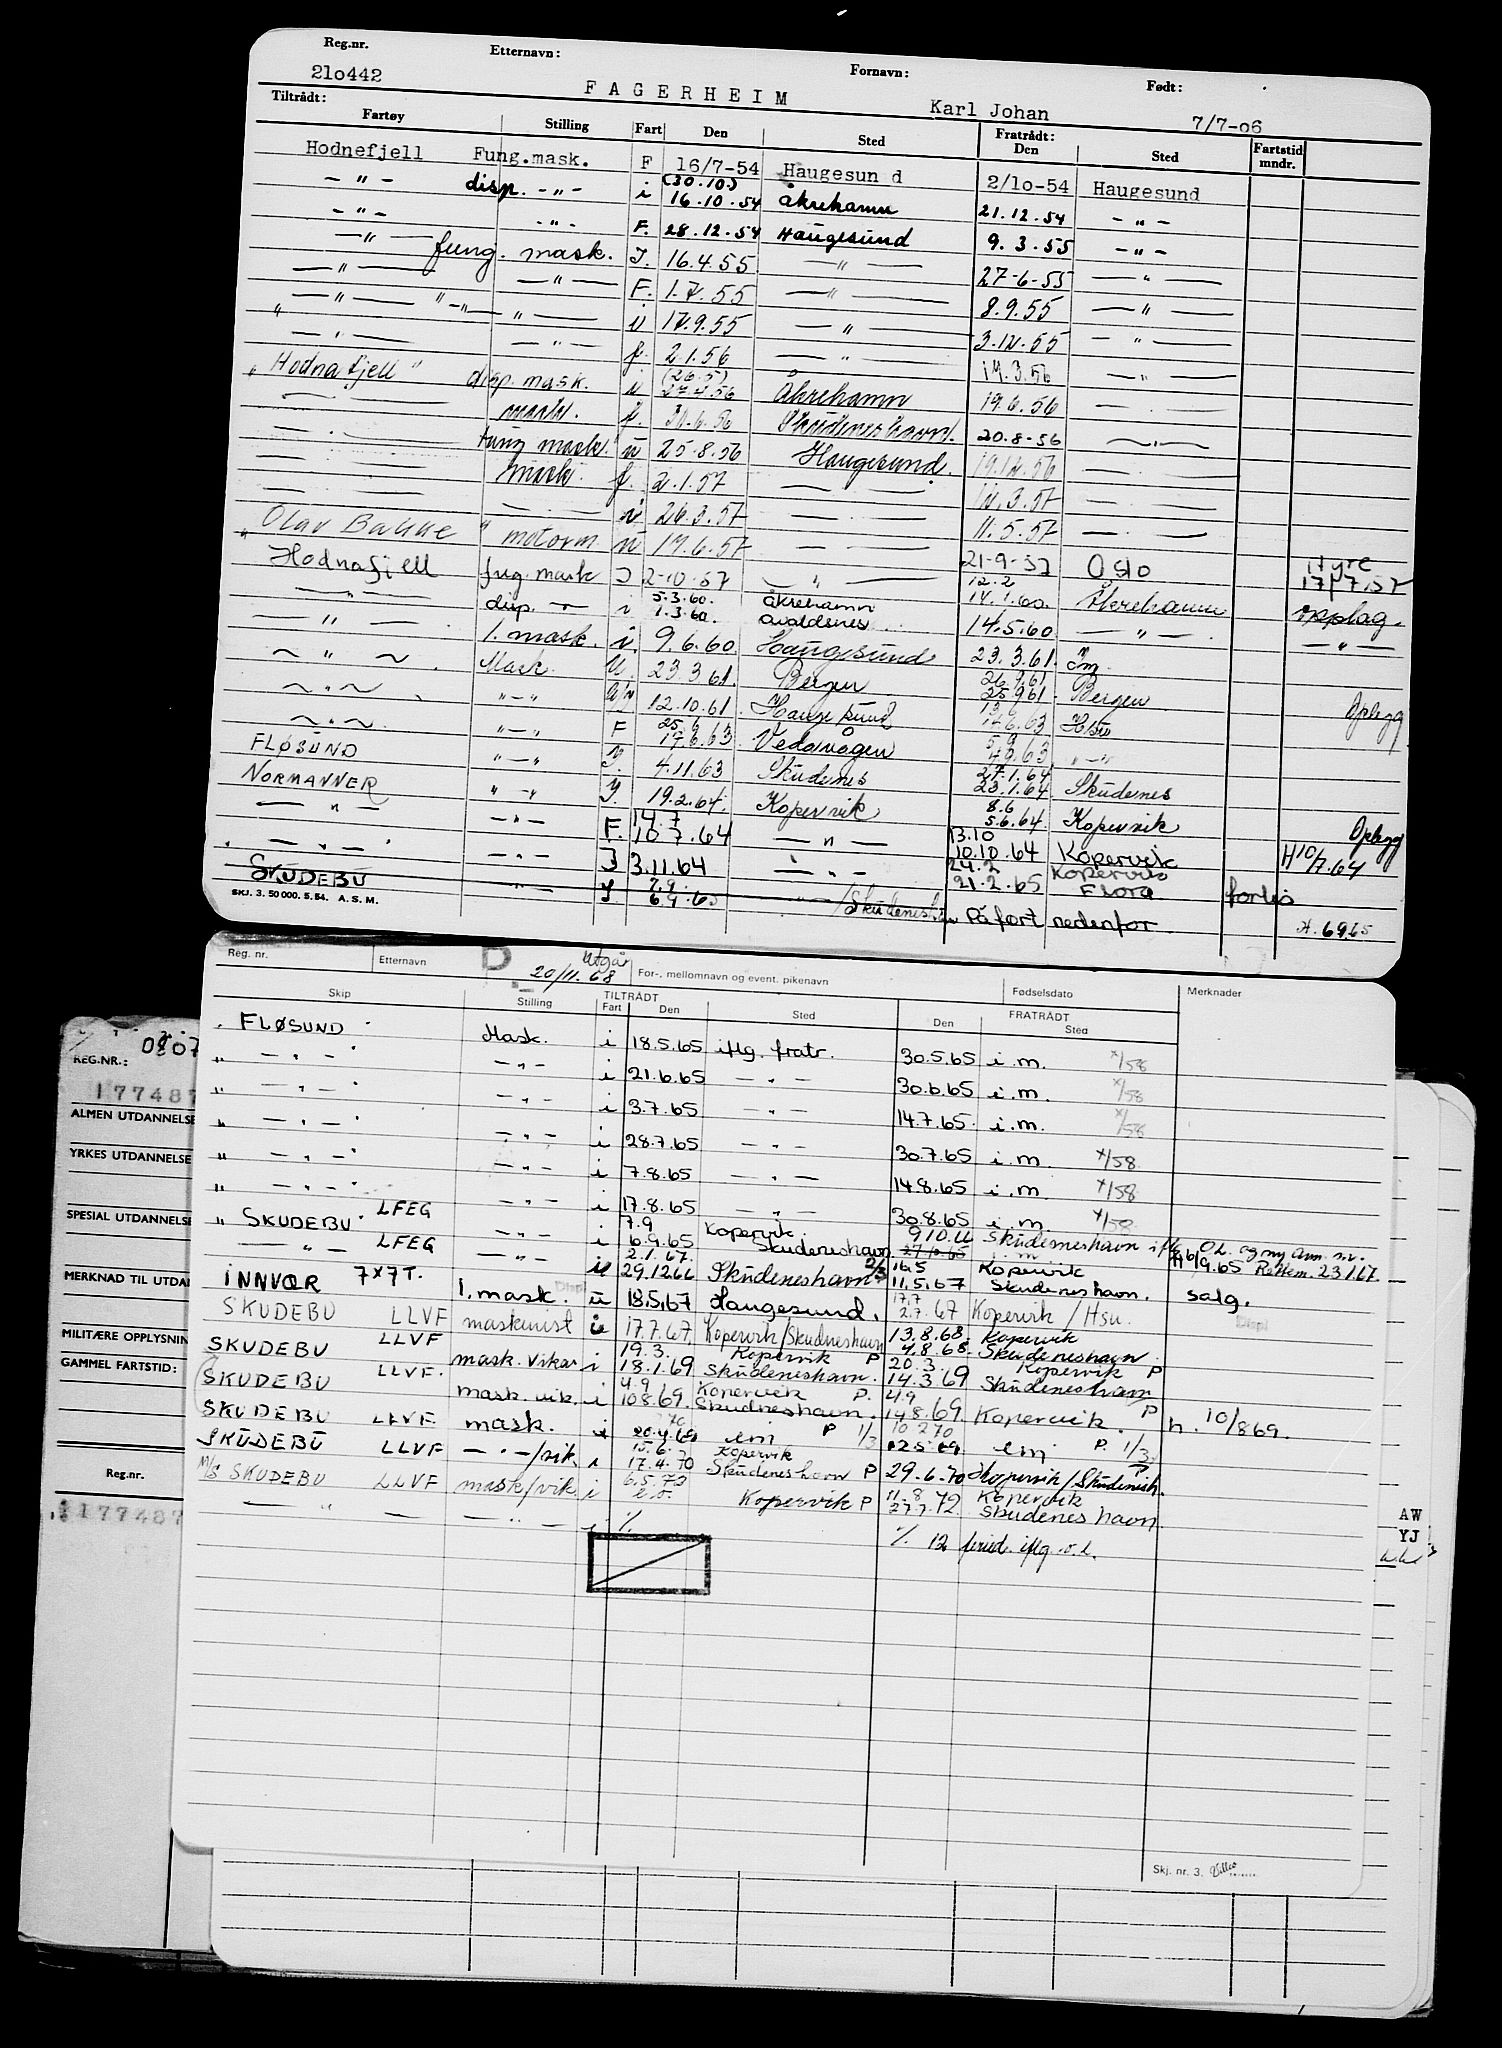 Reg.nr. Etternavn: Fornavn: Født:
21o442 FAGERHEIM Karl Johan 7/7-o6
Tiltrådt: Fratrådt:
Fartøy Stilling Fart Den Sted Den Sted Fartstid mndr.
Hodnefjell Fung.mask. F 16/7-54 Haugesun d 2/1o-54 Haugesund
— " — disp. — " — i (30.10.) 16.10.54 Åkrehamn 21.12.54 — " —
— " — — " — F. 28.12.54 Haugesund 9.3.55 — " —
— " — fung. mask. I. 16.4.55 — " — 27-6-55 — " —
— " — — " — F. 1.7.55 — " — 8.9.55 — " —
" — " — " — " — — " — i 17.9.55 — " — 3.12.55 — " —
— " — — " — f. 2.1.56 — " — 14.3.56 — " —
" Hodnafjell " disp. mask. u (26.5) 27.4.56 Åkrehamn 19.6.56 — " —
— " — mask. f. 30.6.56 Skudeneshavn. 20.8-56 — " —
— " — fung mask. u 25.8.56 Haugesund. 19.12.56 — " —
— " — mask. f. 2.1.57 — " — 12.3.57 — " —
— " — — " — i 26.3.57 — " — 11.5.57 — " —
" Olav Bakke " motorm. u 19.6.57 — " — 21-9-57 Oslo Styrc 17/7.57
Hodnafjell fug. mask I 2-10-57 — " — 12.2 14.1.60. Åkrehamn opplag.
— " — disp. — " — i 5.3.60. 1.3.60. Åkrehamn Avaldsnes 14.5.60 — " — — " —
— " — 1. mask. i. 9.6.60 Haugesund 23.3.61. Im
~ " ~ Mask. U. 23.3.61. Bergen 26.9.61 25.9.61 Bergen Opbygg
~ " ~ " — " 12.10.61. Haugesund 14.6.63 Hsu
~ " ~ " — " F 25.6 19.6.63 Vedavågen 5.9 4.9.63 " — "
FLØSUND " — " I. 4.11.63 Skudenes 27.1.64 23.1.64 Skudenes
NORMANNER " — " I. 19.2.64. Kopervik 8.6 5.6.64. Kopervik Opbygg
— " — — " — F. 14.7 10.7.64 — " — 13.10 10.10.64 Kopervik H 10/7.64
— " — — " — I 3.11.64 — " — 24.2 21.2.65 Kopervik Flora forlis
SKUDEBU — " — I 7.9. 6.9.65 — " — /Skudenesh. På fort nedenfor H. 6.9.65
SKJ. 3. 50 000. 5. 54. A. S. M.
Reg. nr. Etternavn Utgår 20/11.68 For-, mellomnavn og event. pikenavn Fødselsdato Merknader
Skip Stilling TILTRÅDT Fart Den Sted FRATRÅDT Den Sted
FLØSUND Mask. i 18.5.65 iflg. fratr. 30.5.65 i.m. x/58
" — " — — " — i 21.6.65 — " — 30.6.65 i.m. x/58
" — " — — " — i 3.7.65 — " — 14.7.65 i.m. x/58
" — " — — " — i 28.7.65 — " — 30.7.65 i.m. x/58
" — " — — " — i 7.8.65 — " — 14.8.65 i.m. x/58
" — " — — " — i 17.8.65 — " — 30.8.65 i.m. x/58
" SKUDEBU LFEG — " — i 7.9 6.9.65 Kopervik. Skudeneshavn 9.10.66 27.10.65 Skudeneshavn i.m H 6/9.65
— " — LFEG — " — u 2.1.67 29.12.66 Skudeneshavn 2/3 16.5 11.5.67 Kopervik Skudeneshavn. salg.
INNVÆR 7X7T. 1. mask. u 18.5.67 Haugesund. 17.7 2.7.67 Kopervik / Hsu.
SKUDEBU LLVF maskinist i 17.7.67 Kopervik/Skudneshavn 13.8.68 4.8.68 Kopervik Skudeneshavn
SKUDEBU LLVF mask. vikar i 19.3. 18.1.69 Kopervik P Skudeneshavn. 20.3. 14.3.69 Kopervik P Skudeneshavn
SKUDEBU LLVF. mask. vik. i 4.9 10.8.69. Kopervik P. Skudneshavn. 4.9 14.8.69 Kopervik. P h. 10/8 69.
SKUDEBU LLVF mask. i 20.9.69 em P 1/3 10 2 70 em P. 1/3
SKUDEBU LLVF — " — /vik. i 15.6. 17.4.70 Kopervik Skudeneshavn P 29.6.70 Kopervik/Skudenesh. P
M/S SKUDEBU LLVF mask/vik. i 6.5.72 Kopervik P 11.8.72 27.7. Kopervik Skudeneshavn.
— " — — " — i % % 12 iflg. o.l.
Skj. nr. 3.
REG.NR.:
177487
ALMEN UTDANNELSE
YRKES UTDANNELSE
SPESIAL UTDANNELSE
MERKNAD TIL UTDA
MILITÆRE OPPLYSNIN
GAMMEL FARTSTID:
Reg.nr.
177487
AW
YJ